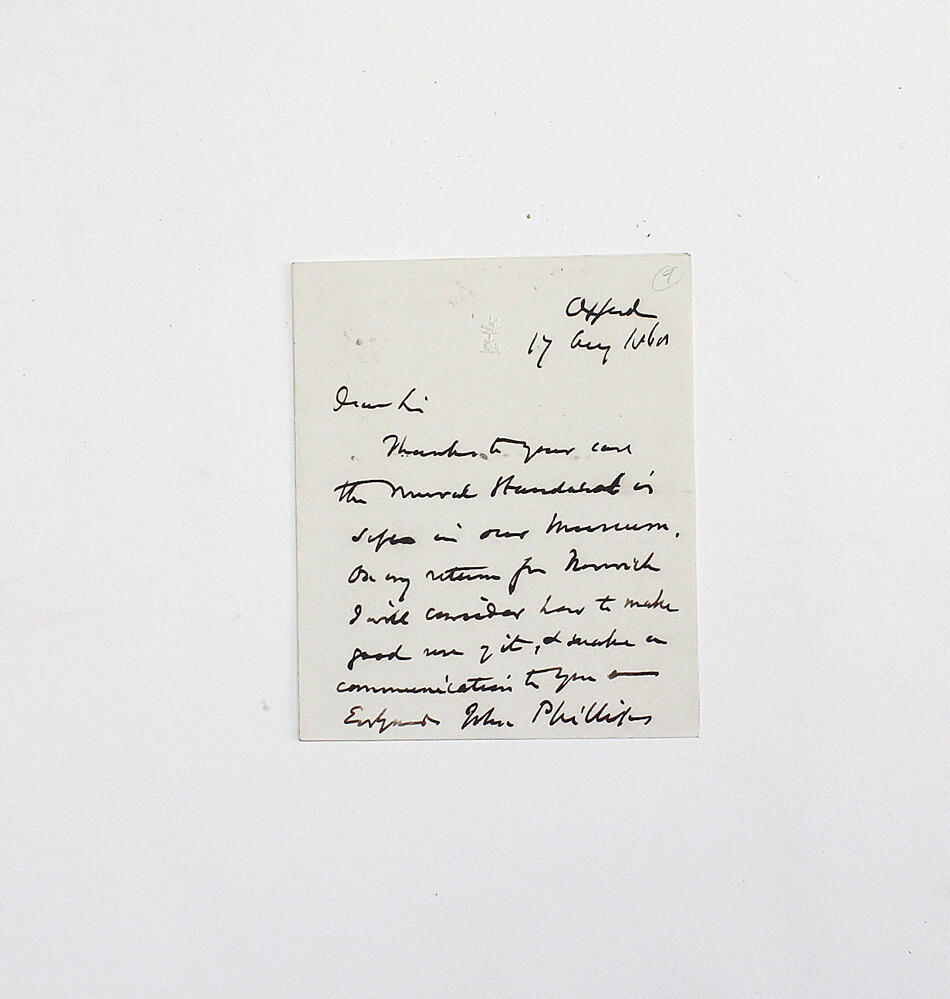 9
Oxford
17 Aug 1868
Dear Sir
Thanks to your care
the Mural Standard is
safe in our Museum.
On my return from Norwich
I will consider how to make
good use of it, & make a
communication to you
Ev yrs John Phillips